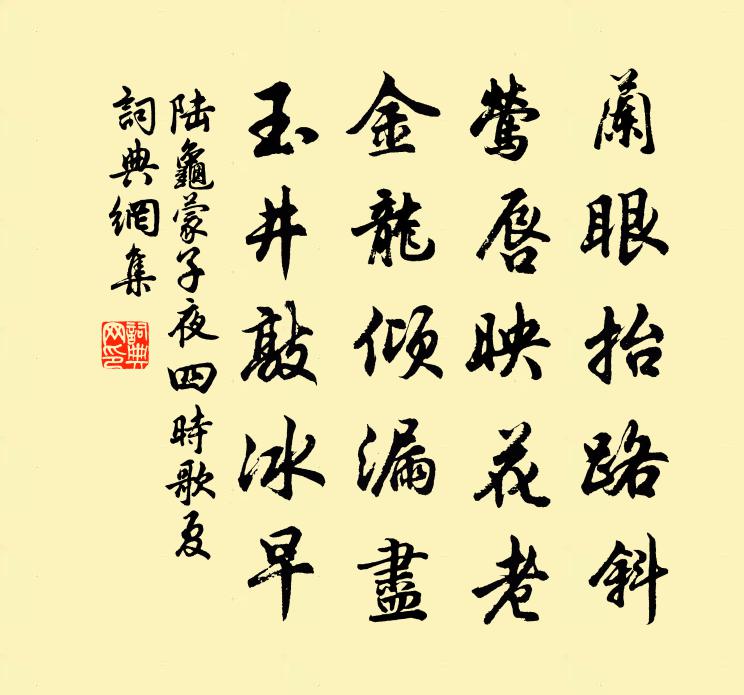 蘭眼抬路斜
鶯唇映花老
金龍傾漏盡
玉井敲冰早
陸龜蒙子夜四時歌夏
詞典網集
詞典网印